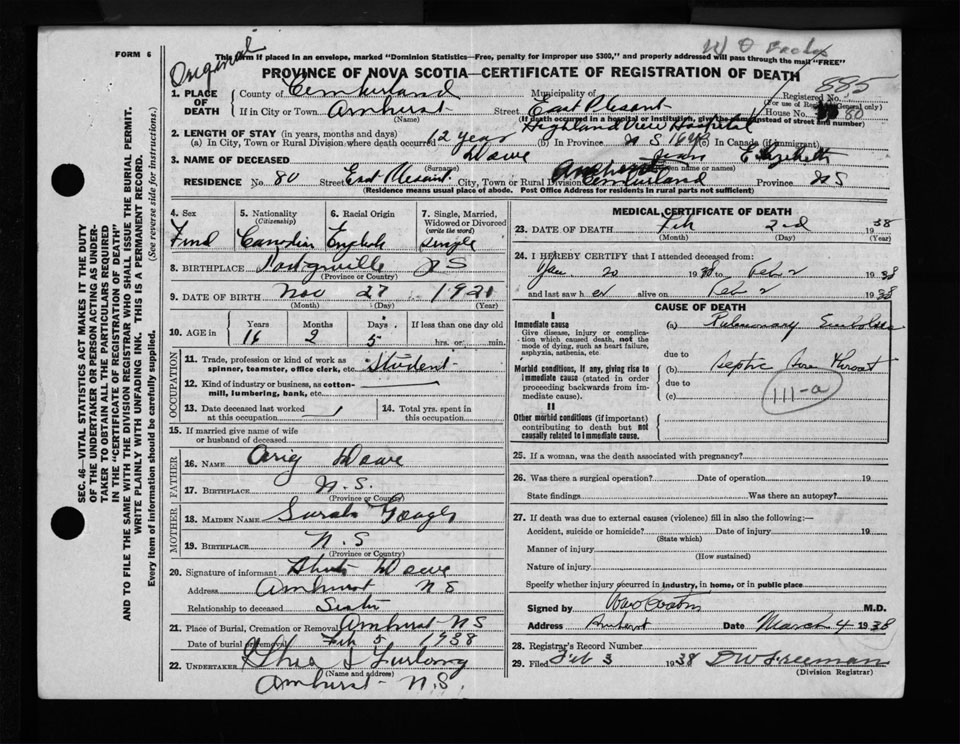 FORM 6
Original
This form if placed in an envelope, marked "Dominion Statistics—Free, penalty for improper use $300," and properly addressed will pass through the mail "FREE"
PROVINCE OF NOVA SCOTIA—CERTIFICATE OF REGISTRATION OF DEATH
885
1. PLACE OF DEATH
County of Cumberland Municipality of Registered No.
(For use of Registrar General only)
If in City or Town Amhurst Street East Plesant House No. 80
(Name) (If death occurred in a hospital or institution, give the name instead of street and number)
Highland View Hospital
2. LENGTH OF STAY (in years, months and days)
(a) In City, Town or Rural Division where death occurred 12 years (b) In Province N S 16 y (c) In Canada (if immigrant)
3. NAME OF DECEASED Dowe Jean Elizabeth
(Surname) (Given name or names)
RESIDENCE No. 80 Street East Plesant City, Town or Rural Division Cumberland Province NS
(Residence means usual place of abode. Post Office Address for residents in rural parts not sufficient)
4. Sex
5. Nationality
(Citizenship)
6. Racial Origin
7. Single, Married, Widowed or Divorced
(write the word)
Canadian English single
8. BIRTHPLACE N S
(Province or Country)
9. DATE OF BIRTH Nov 27 1921
(Month) (Day) (Year)
10. AGE in Years Months Days If less than one day
16 2 5 hrs. or min.
OCCUPATION
11. Trade, profession or kind of work as spinner, teamster, office clerk, etc. Student
12. Kind of industry or business, as cotton-mill, lumbering, bank, etc.
13. Date deceased last worked at this occupation
14. Total yrs. spent in this occupation
15. If married give name of wife or husband of deceased
FATHER
16. NAME Dowe
17. BIRTHPLACE N.S.
(Province or Country)
MOTHER
18. MAIDEN NAME Sarah
19. BIRTHPLACE N.S
(Province or Country)
20. Signature of informant Dowe
Address Amhurst N S
Relationship to deceased Sister
21. Place of Burial, Cremation or Removal Amhurst NS
Date of burial or removal Feb 5 1938
22. UNDERTAKER Furlong
(Name and address)
Amhurst N.S.
MEDICAL CERTIFICATE OF DEATH
23. DATE OF DEATH Feb 2nd 1938
(Month) (Day) (Year)
24. I HEREBY CERTIFY that I attended deceased from:
Jan 20 1938 to Feb 2 1938
and last saw her alive on Feb 2 1938
CAUSE OF DEATH
I
Immediate cause
Give disease, injury or complication which caused death, not the mode of dying, such as heart failure, asphyxia, asthenia, etc.
(a) Pulmonary Embolus
due to
Morbid conditions, if any, giving rise to immediate cause (stated in order proceeding backwards from immediate cause).
(b) Septic Sore Throat
due to
(c)
111-a
II
Other morbid conditions (if important) contributing to death but not causally related to immediate cause.
25. If a woman, was the death associated with pregnancy?
26. Was there a surgical operation? Date of operation 19
State findings Was there an autopsy?
27. If death was due to external causes (violence) fill in also the following:—
Accident, suicide or homicide? Date of injury 19
(State which)
Manner of injury
(How sustained)
Nature of injury
Specify whether injury occurred in industry, in home, or in public place
Signed by M.D.
Address Amherst Date March 4 1938
28. Registrar's Record Number
29. Filed Feb 3 1938 Freeman
(Division Registrar)
SEC. 46—VITAL STATISTICS ACT MAKES IT THE DUTY
OF THE UNDERTAKER OR PERSON ACTING AS UNDER-
TAKER TO OBTAIN ALL THE PARTICULARS REQUIRED
IN THE "CERTIFICATE OF REGISTRATION OF DEATH"
AND TO FILE THE SAME WITH THE DIVISION REGISTRAR WHO SHALL ISSUE THE BURIAL PERMIT.
WRITE PLAINLY WITH UNFADING INK. THIS IS A PERMANENT RECORD.
Every item of information should be carefully supplied. (See reverse side for instructions.)